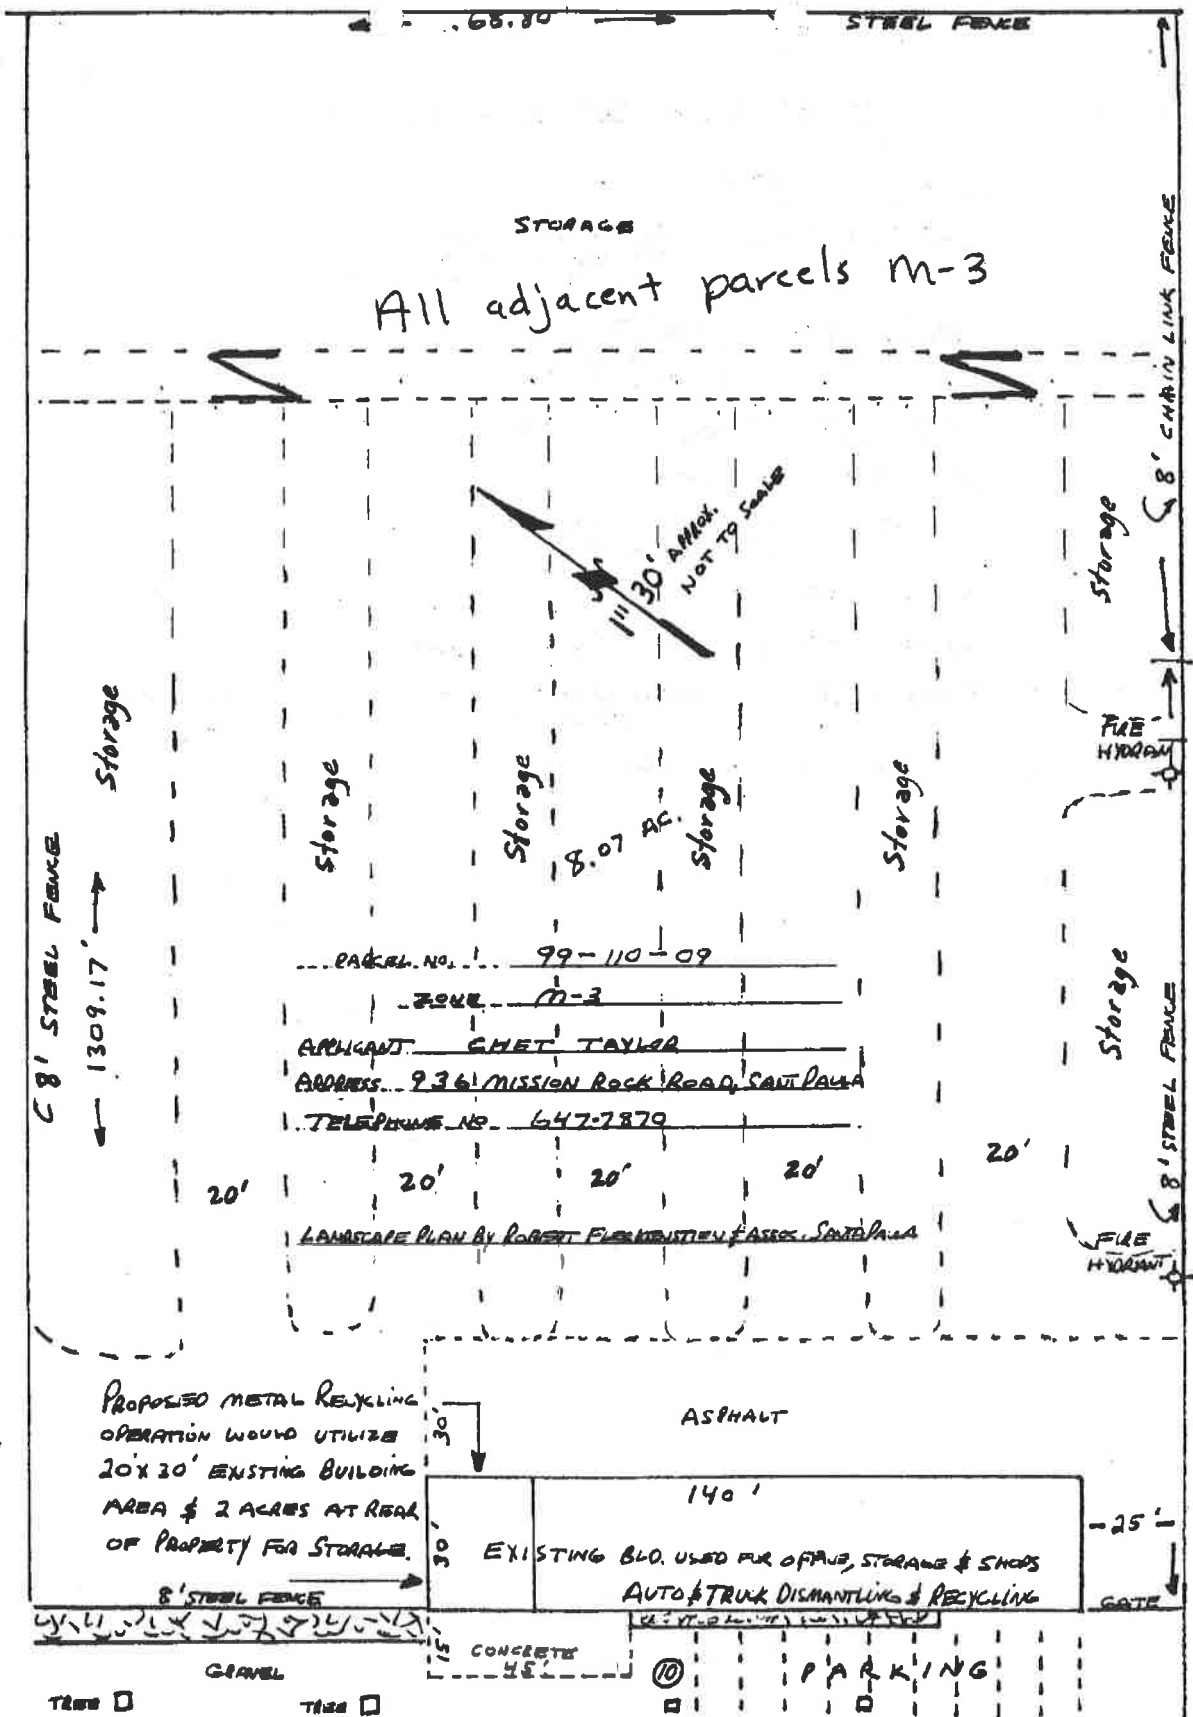 STEEL FENCE
STORAGE
All adjacent parcels M-3
8' CHAIN LINK FENCE
1" 30' APPROX.
NOT TO SCALE
Storage
Storage
Storage
Storage
Storage
Storage
8.07 AC.
FIRE
HYDRAN
8' STEEL FENCE
1309.17'
PARCEL NO. 99-110-09
ZONE M-3
APPLICANT CHET TAYLOR
ADDRESS 936 MISSION ROCK ROAD, SANTA PAULA
TELEPHONE NO 647-7870
Storage
8' STEEL FENCE
20' 20' 20' 20' 20'
LANDSCAPE PLAN BY ROBERT & ASSOC. SANTA PAULA
FIRE
HYDRANT
PROPOSED METAL RECYCLING
OPERATION WOULD UTILIZE
20'X 30' EXISTING BUILDING
AREA & 2 ACRES AT REAR
OF PROPERTY FOR STORAGE.
8' STEEL FENCE
30'
ASPHALT
140'
30'
EXISTING BLD. USED FOR OFFICE, STORAGE & SHOPS
AUTO & TRUCK DISMANTLING & RECYCLING
25'
GATE
15'
CONCRETE
45'
GRAVEL
10
PARKING
TREE
TREE